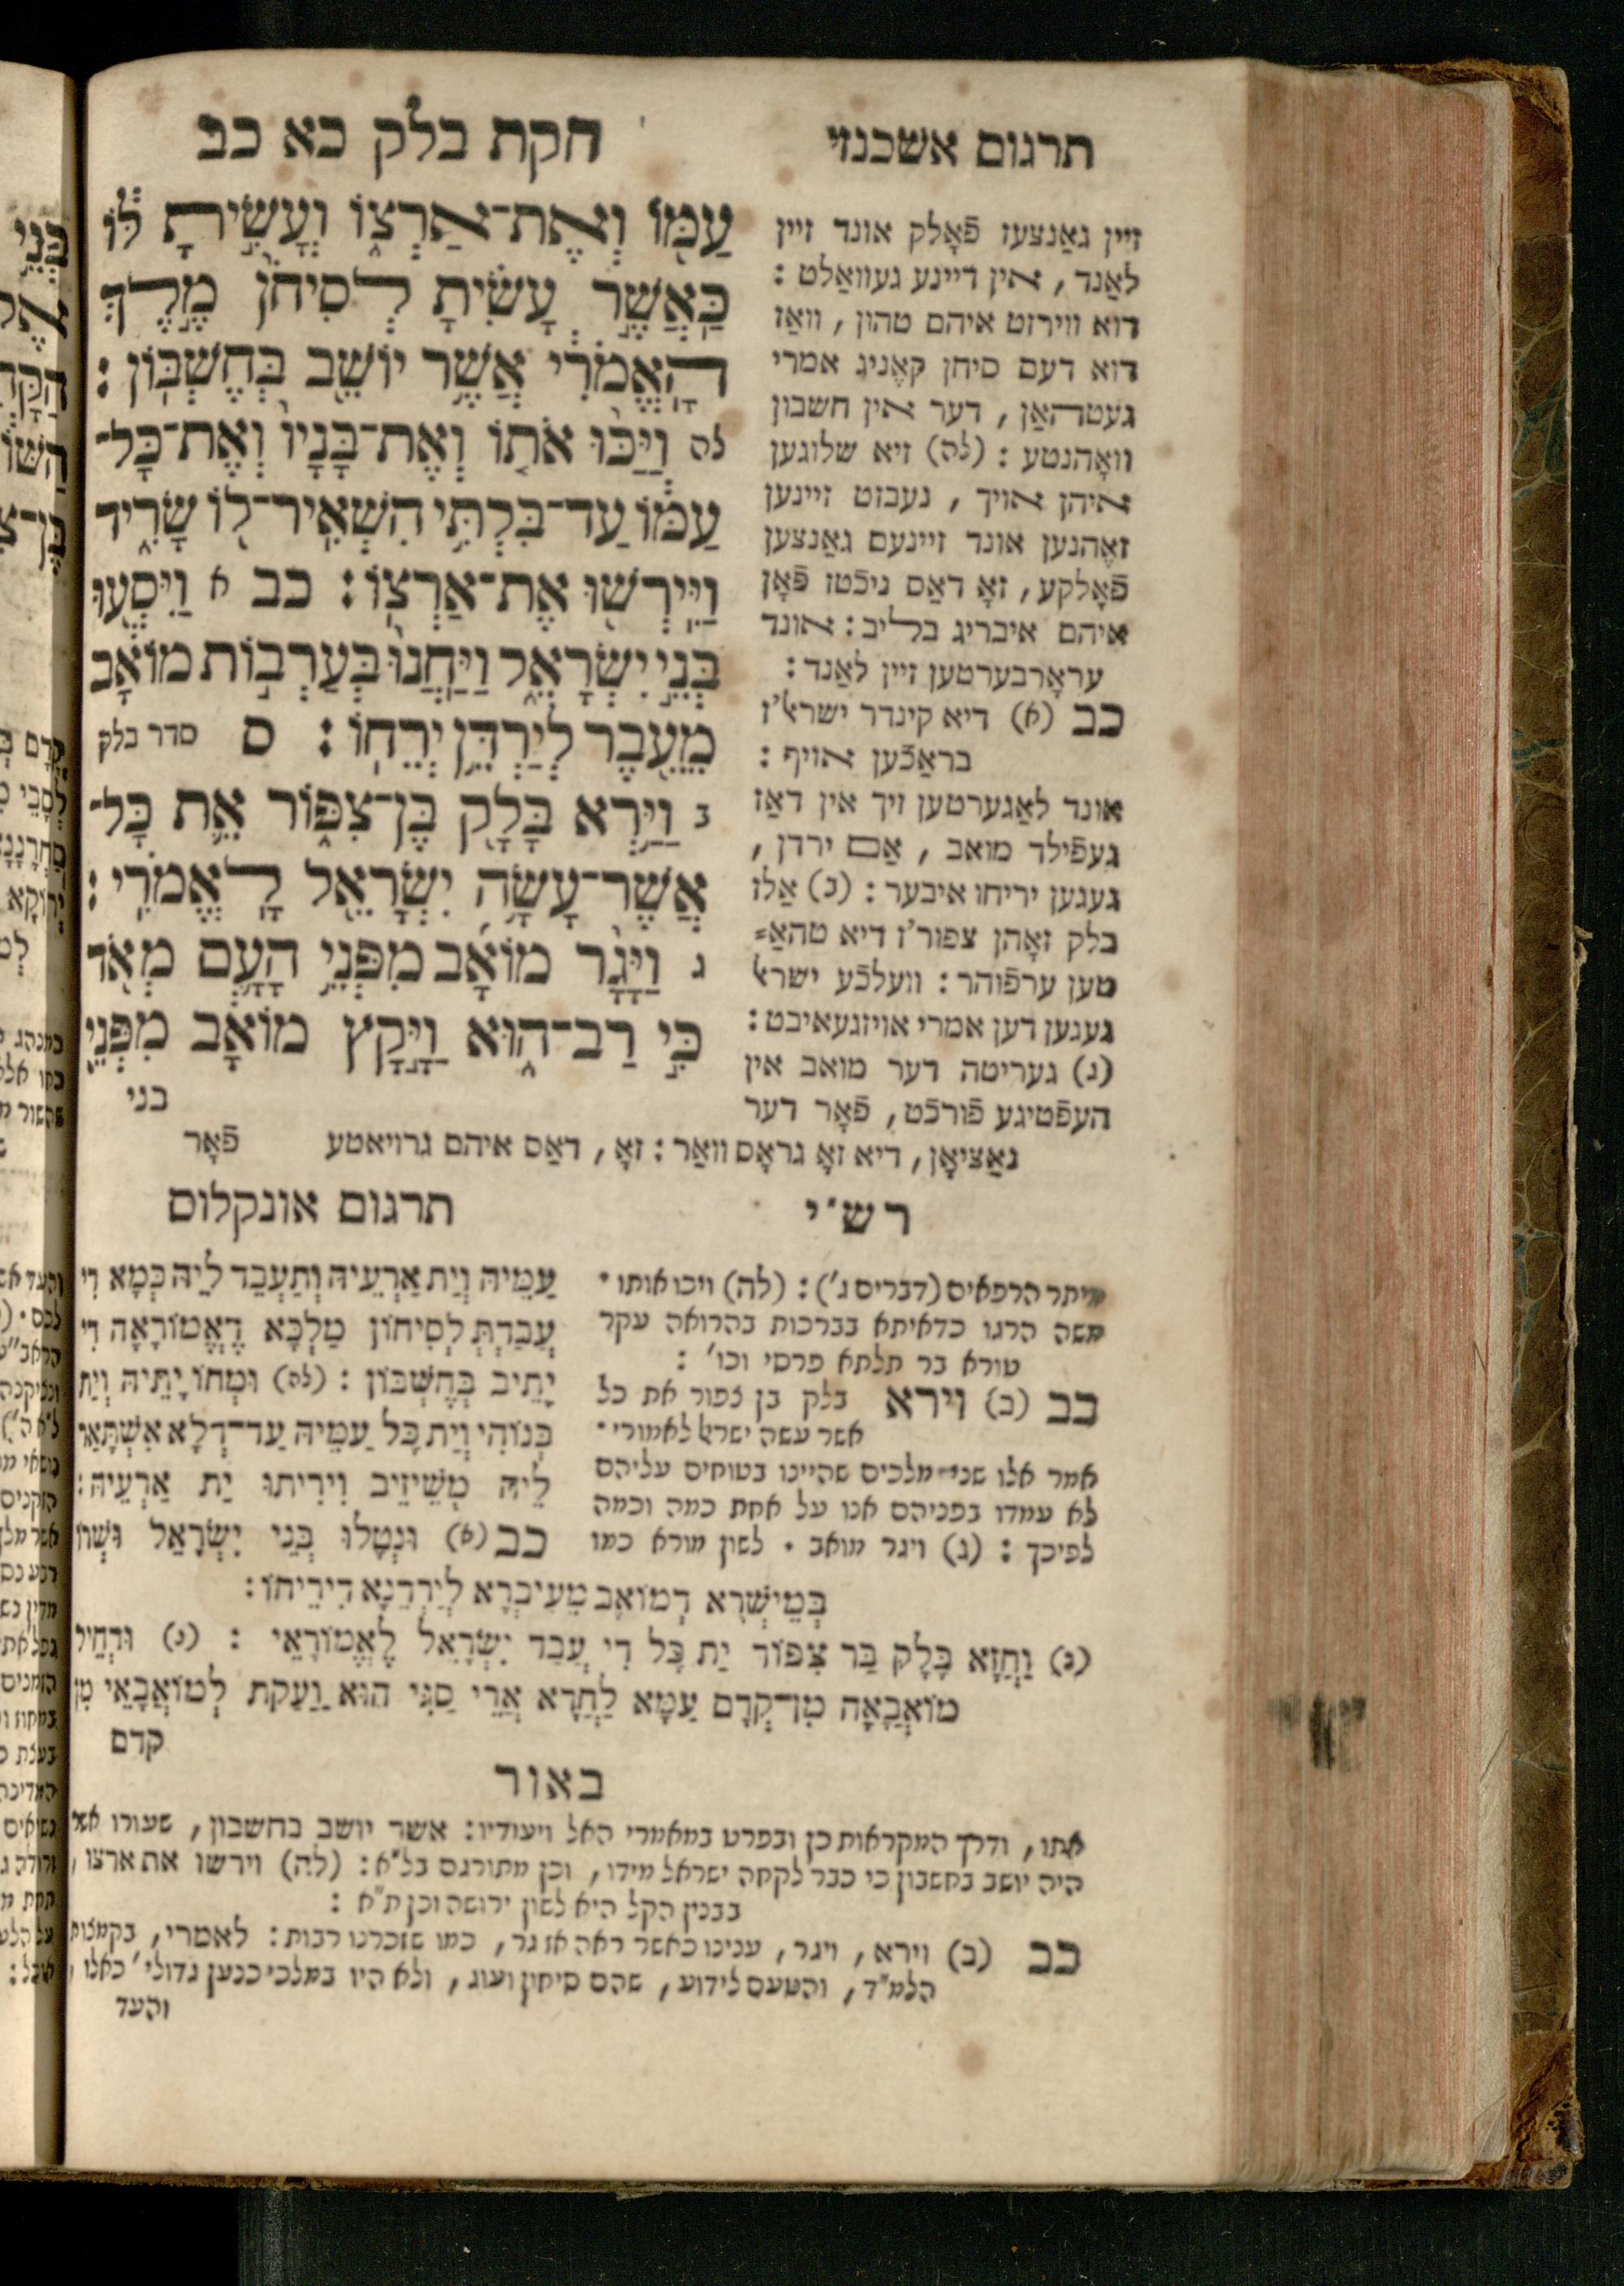 חקת בלק כא כב
תרגום אשכנזי
עַמּ֖וֹ וְאֶת־אַרְצ֑וֹ וְעָשִׂ֣יתָ לּ֔וֹ
כַּאֲשֶׁ֣ר עָשִׂ֗יתָ לְסִיחֹן֙ מֶ֣לֶךְ
הָֽאֱמֹרִ֔י אֲשֶׁ֥ר יוֹשֵׁ֖ב בְּחֶשְׁבּֽוֹן :
לה וַיַּכּ֨וּ אֹת֤וֹ וְאֶת־בָּנָיו֙ וְאֶת־כָּל־
עַמּ֔וֹ עַד־בִּלְתִּ֥י הִשְׁאִֽיר־ל֖וֹ שָׂרִ֑יד
וַיִּֽירְשׁ֖וּ אֶת־אַרְצֽוֹ : כב א וַיִּסְע֖וּ
בְּנֵ֣י יִשְׂרָאֵ֑ל וַֽיַּחֲנוּ֙ בְּעַרְב֣וֹת מוֹאָ֔ב
מֵעֵ֖בֶר לְיַרְדֵּ֥ן יְרֵחֽוֹ : ס סדר בלק
ב וַיַּ֥רְא בָּלָ֖ק בֶּן־צִפּ֑וֹר אֵ֛ת כָּל־
אֲשֶׁר־עָשָׂ֥ה יִשְׂרָאֵ֖ל לָֽאֱמֹרִֽי :
ג וַיָּ֨גָר מוֹאָ֜ב מִפְּנֵ֥י הָעָ֛ם מְאֹ֖ד
כִּ֣י רַב־ה֑וּא וַיָּ֣קָץ מוֹאָ֔ב מִפְּנֵ֖י
בני
זיין גאַנצעז פֿאָלק אונד זיין
לאַנד , אין דיינע געוואַלט :
דוא ווירזט איהם טהון , וואַז
דוא דעם סיחן קאֶניג אמרי
געטהאַן , דער אין חשבון
וואָהנטע : (לה) זיא שלוגען
איהן אויך , נעבזט זיינען
זאֶהנען אונד זיינעם גאַנצען
פֿאָלקע , זאָ דאַס ניכֿטז פֿאָן
איהם איבריג בליב : אונד
עראָרבערטען זיין לאַנד :
כב (א) דיא קינדר ישראל'ז
בראַכֿען אויף :
אונד לאַגערטען זיך אין דאַז
געפֿילד מואב , אַם ירדן ,
געגען יריחו איבער : (ב) אַלז
בלק זאָהן צפור'ז דיא טהאַ=
טען ערפֿוהר : וועלכֿע ישראל
געגען דען אמרי אויזגעאיבט :
(ג) געריטה דער מואב אין
העפֿטיגע פֿורכֿט , פֿאָר דער
נאַציאָן , דיא זאָ גראָס וואַר : זאָ , דאַס איהם גרויאטע פֿאָר
רש"י
מיתר הרפאים (דברים ג') : (לה) ויכו אותו ·
משה הרגו כדאיתא בברכות בהרואה עקר
טורא בר תלתא פרסי וכו' :
כב (ב) וירא בלק בן צפור את כל
אשר עשה ישראל לאמורי ·
אמר אלו שני מלכים שהיינו בטוחים עליהם
לא עמדו בפניהם אנו על אחת כמה וכמה
לפיכך : (ג) ויגר מואב · לשון מורא כמו
תרגום אונקלוס
עַמֵּיהּ וְיַת אַרְעֵיהּ וְתַעְבֵּד לֵיהּ כְּמָא דִי
עֲבַדְתְּ לְסִיחוֹן מַלְכָּא דֶאֱמוֹרָאָה דִי
יָתֵיב בְּחֶשְׁבּוֹן : (לה) וּמְחוֹ יָתֵיהּ וְיַת
בְּנוֹהִי וְיַת כָּל עַמֵּיהּ עַד־דְּלָא אִשְׁתָּאַר
לֵיהּ מְשֵׁיזֵיב וִירִיתוּ יַת אַרְעֵיהּ :
כב (א) וּנְטָלוּ בְּנֵי יִשְׂרָאֵל וּשְׁרוֹ
בְּמֵישְׁרַיָּא דְמוֹאָב מֵעִיבְרָא לְיַרְדְּנָא דִירֵיחוֹ :
(ב) וַחֲזָא בָּלָק בַּר צִפּוֹר יַת כָּל דִי עֲבַד יִשְׂרָאֵל לֶאֱמוֹרָאֵי : (ג) וּדְחֵיל
מוֹאֲבָאָה מִן־קֳדָם עַמָּא לַחֲדָא אֲרֵי סַגִּי הוּא וַעֲקַת לְמוֹאֲבָאֵי מִן
קדם
באור
אתו , ודרך המקראות כן ובפרט במאמרי האל ויעודיו : אשר יושב בחשבון , שעורו אשר
היה יושב בחשבון כי כבר לקחה ישראל מידו , וכן מתורגם בל"א : (לה) וירשו את ארצו ,
בבנין הקל היא לשון ירושה וכן ת"א :
כב (ב) וירא , ויגר , ענינו כאשר ראה אז גר , כמו שזכרנו רבות : לאמרי , בקמצות
הלמ"ד , והטעם לידוע , שהם סיחון ועוג , ולא היו במלכי כנען גדולי' כאלו ,
והעד